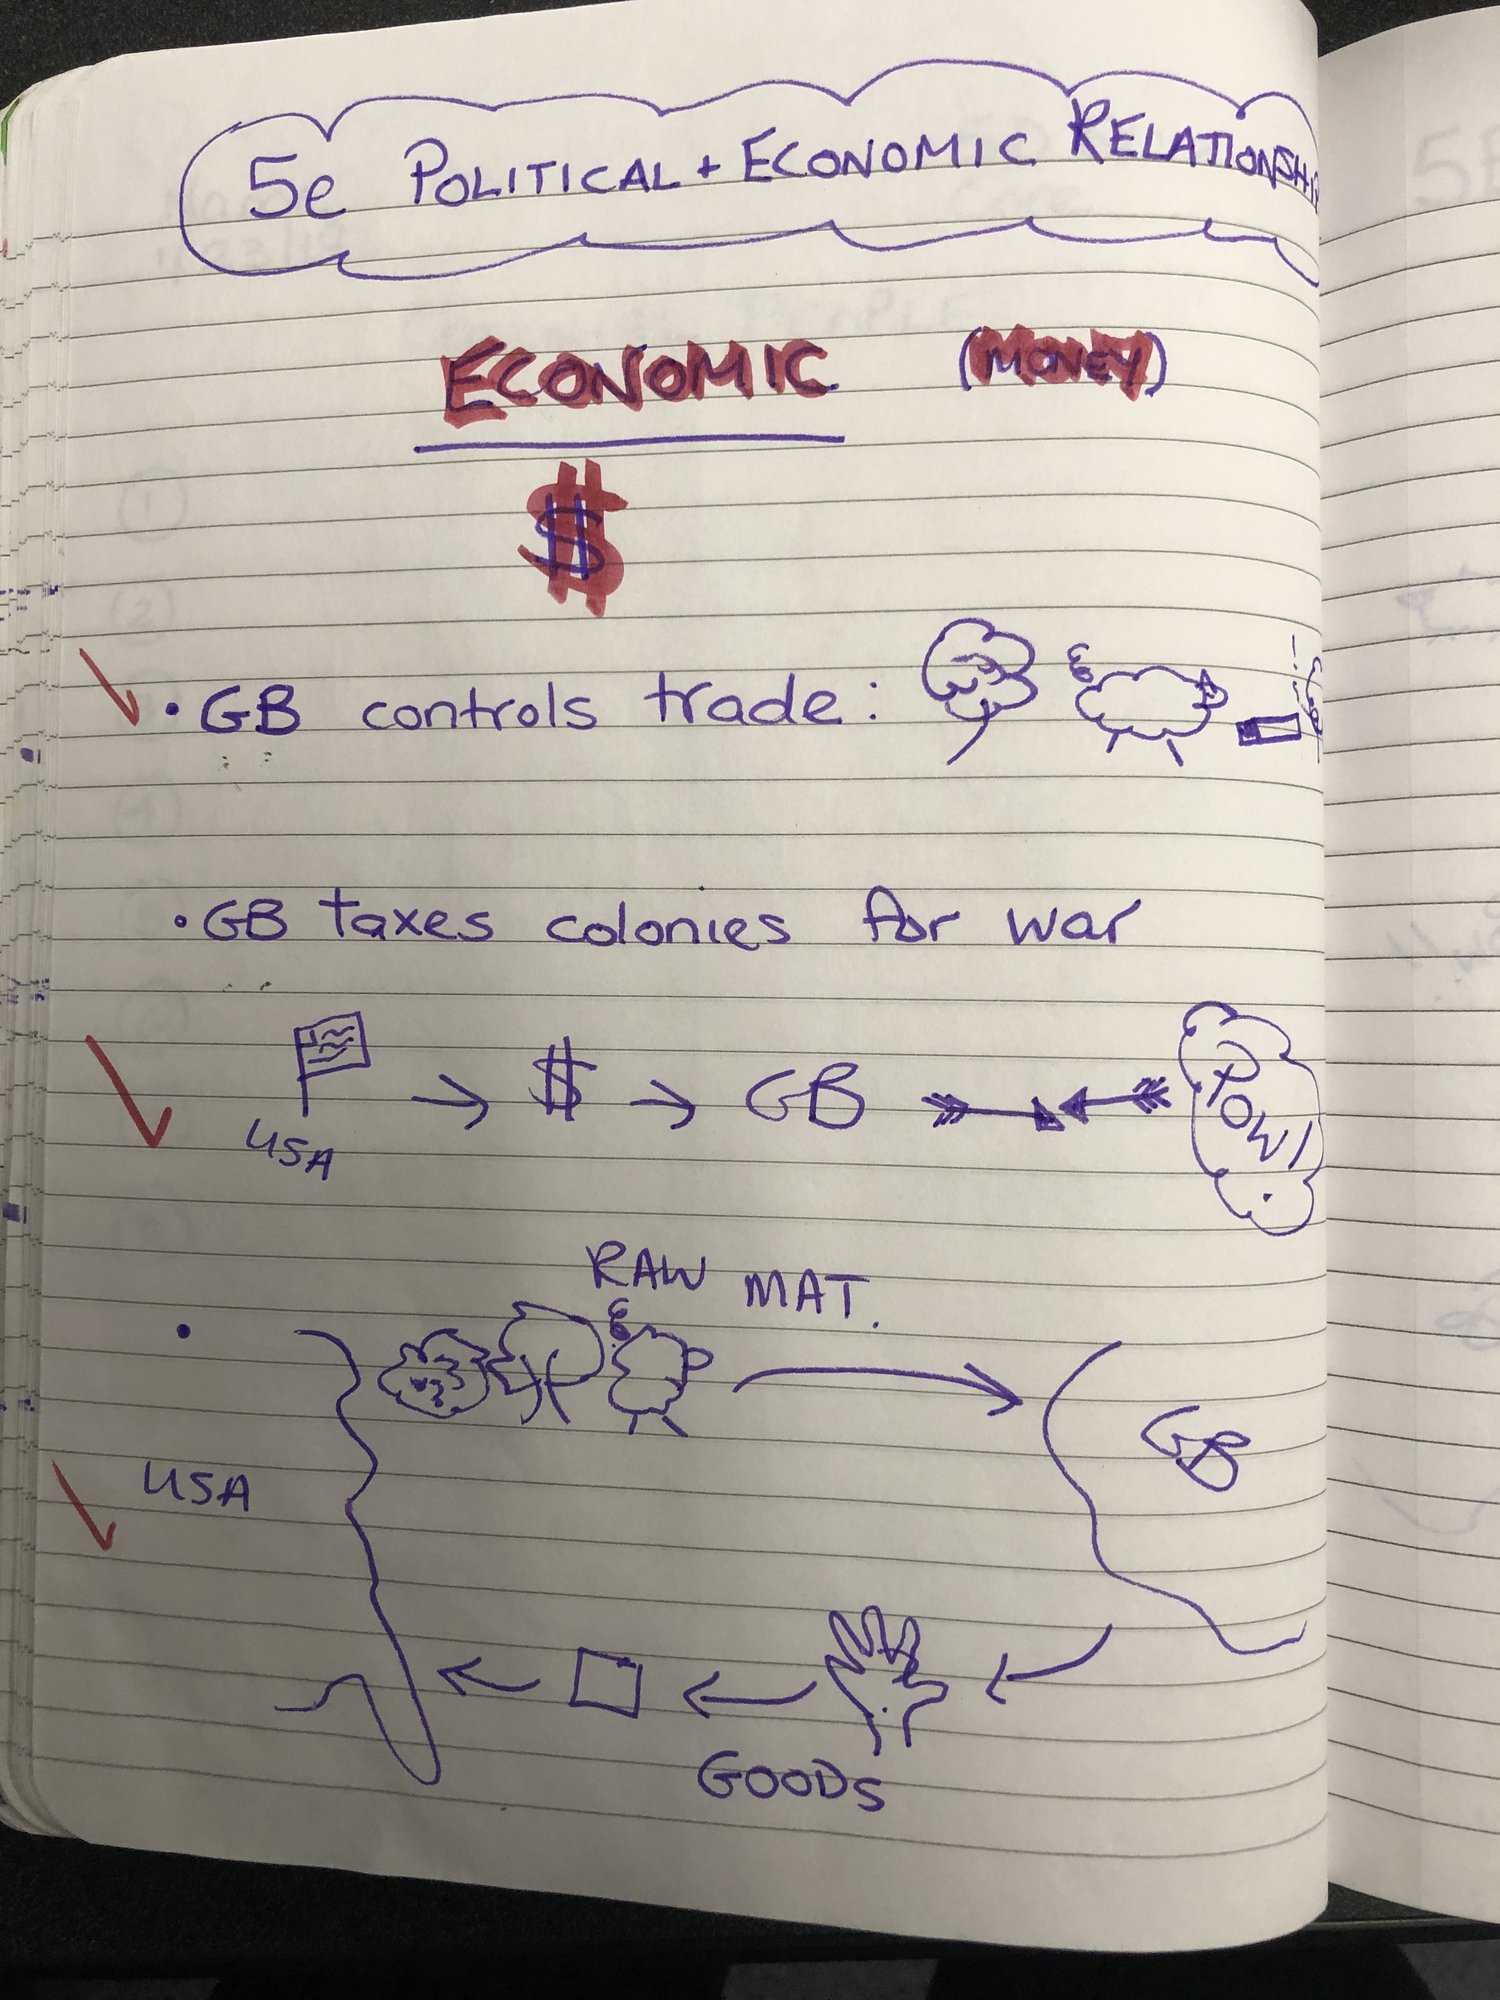 5e POLITICAL + ECONOMIC RELATIONSHIP
ECONOMIC (MONEY)
$
• GB controls trade:
• GB taxes colonies for war
$ GB POW!
USA
RAW MAT.
•
GB
USA
GOODS